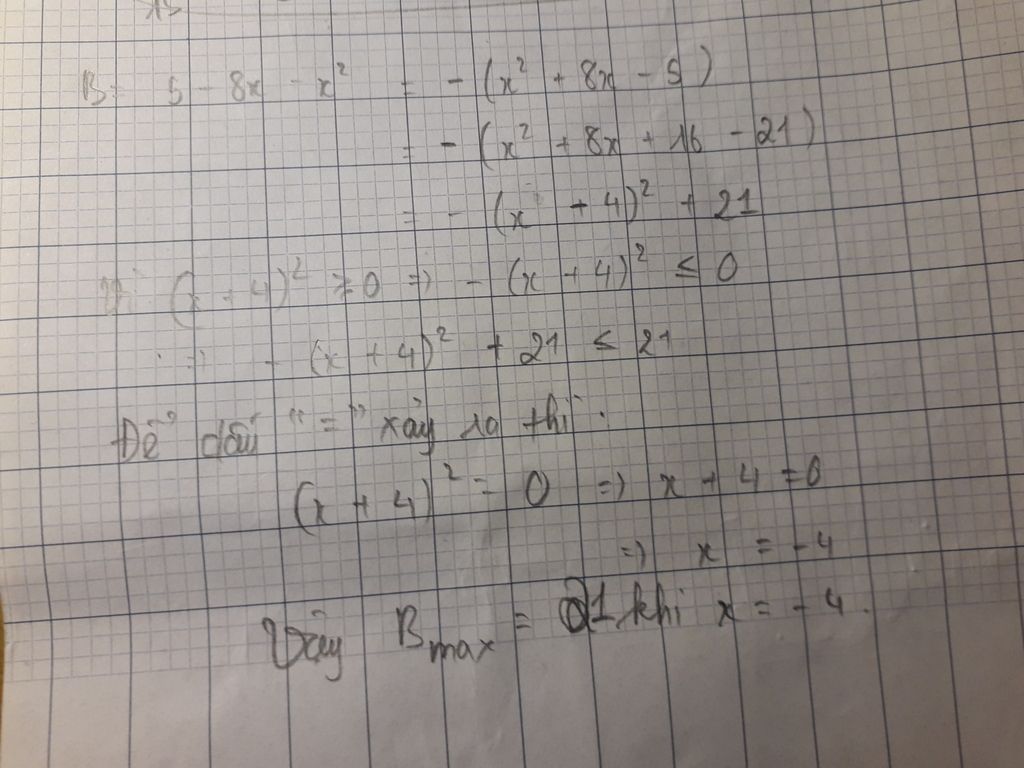 B = 5 - 8x - x² = - (x² + 8x - 5)
= - (x² + 8x + 16 - 21)
= - (x + 4)² + 21
Vì (x + 4)² ≥ 0 => - (x + 4)² ≤ 0
=> - (x + 4)² + 21 ≤ 21
Để dấu "=" xảy ra thì:
(x + 4)² = 0 => x + 4 = 0
=> x = -4
Vậy Bmax = 21 khi x = -4.